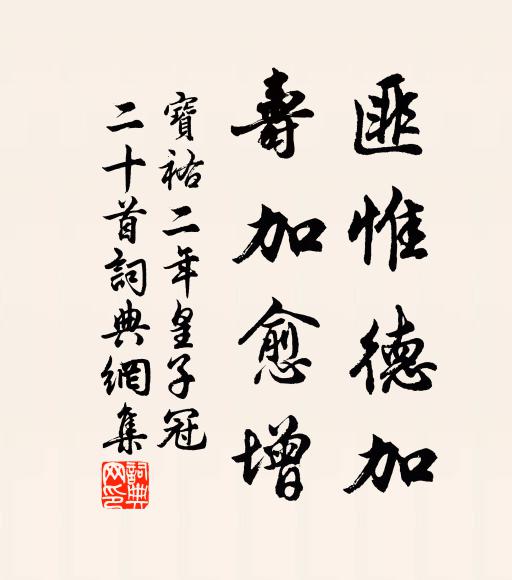 匪惟德加
壽加愈增
寶祐二年皇子冠
二十首詞典網集
詞典网印